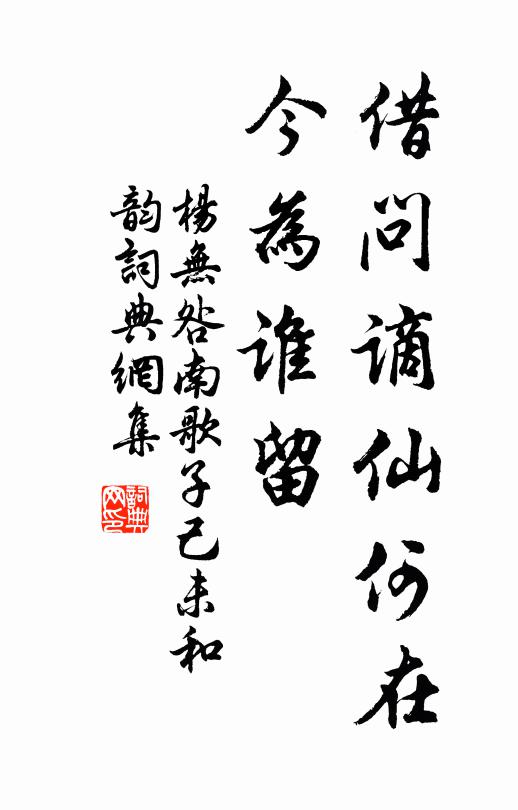 借問謫仙何在
今為誰留
楊無咎南歌子己未和
韵詞典網集
詞典网印